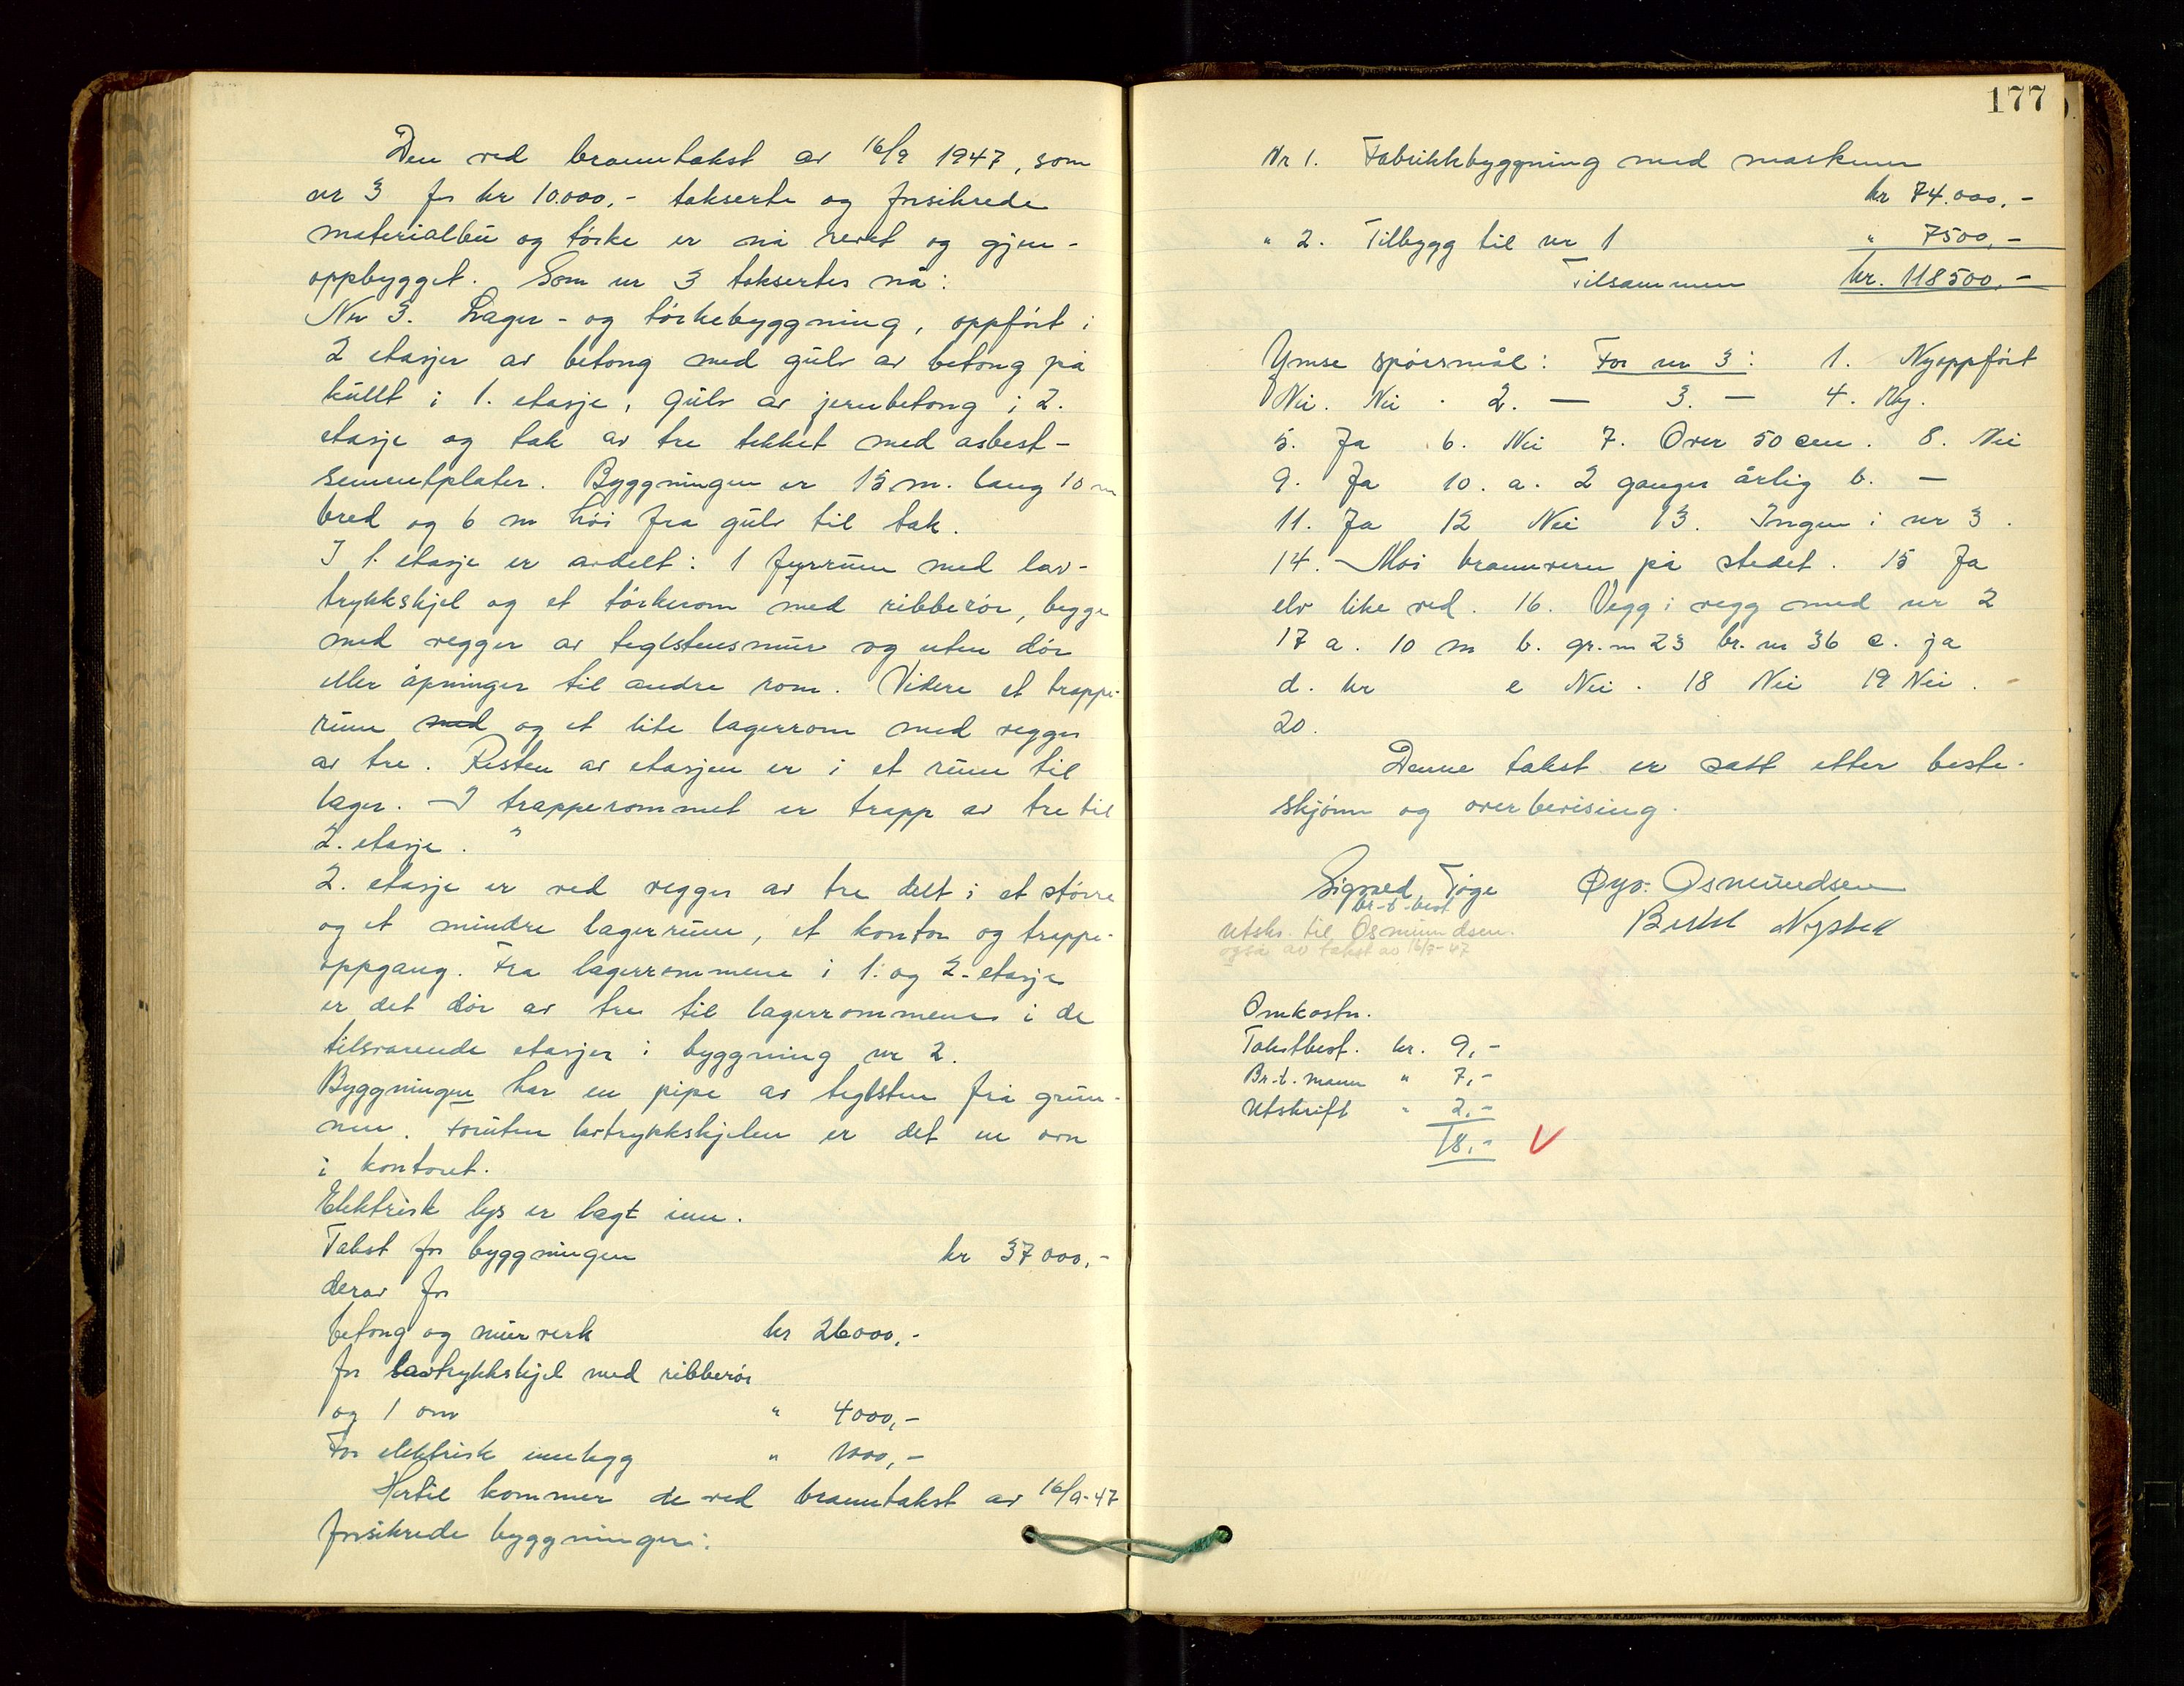 Den ved branntakst av 16/9 1947, som
nr 3 for kr 10.000,- takserte og forsikrede
materialbu og tørke er nå revet og gjen-
oppbygget. Som nr 3 taksertes nå:
Nr 3. Lager- og tørkebyggning, oppført i
2 etasjer av betong med gulv av betong på
kullt i 1. etasje, gulv av jernbetong i 2.
etasje og tak av tre tekket med asbest-
sementplater. Byggningen er 15 m. lang 10 m
bred og 6 m høi fra gulv til tak.
I 1. etasje er avdelt: 1 fyrrum med lav-
trykkskjel og et tørkerom med ribberør, begge
med vegger av teglstensmur og uten dør
eller åpninger til andre rom. Videre et trappe-
rum med og et lite lagerrom med vegger
av tre. Resten av etasjen er i et rum til
lager. I trapperommet er trapp av tre til
2. etasje.
2. etasje er ved vegger av tre delt i et større
og et mindre lagerrum, et kontor og trappe-
oppgang. Fra lagerrommene i 1. og 2. etasje
er det dør av tre til lagerrommene i de
tilsvarende etasjer i byggning nr 2.
Byggningen har en pipe av teglsten fra grun-
nen. Foruten lavtrykkskjelen er det en ovn
i kontoret.
Elektrisk lys er lagt inn.
Takst for byggningen kr 37000,-
derav for
betong og murverk kr 26000,-
for lavtrykkskjel med ribberør
og 1 ovn " 4000,-
For elektrisk innlegg " 1000,-
Hertil kommer de ved branntakst av 16/9-47
forsikrede byggninger:
177
Nr 1. Fabrikkbyggning med maskiner
kr 74.000,-
" 2. Tilbygg til nr 1 " 7500,-
Tilsammen kr. 118500,-
Ymse spørsmål: For nr 3: 1. Nyoppført
Nei. Nei. 2. — 3. — 4. Ny.
5. Ja 6. Nei 7. Over 50 cm. 8. Nei
9. Ja 10. a. 2 ganger årlig b. —
11. Ja 12 Nei 13. Ingen i nr 3.
14. brannvern på stedet. 15 Ja
elv like ved. 16. Vegg i vegg med nr 2
17 a. 10 m b. gr.nr 23 br.nr 36 c. ja
d. kr e Nei. 18 Nei 19 Nei.
20.
Denne takst er satt etter beste
skjønn og overbevising.
Sigved Tøge Øyv. Osmundsen
br-t-best
utskr. til Osmundsen.
også av takst av 16/9-47
Omkostn.
Takstbest. kr. 9,-
Br.-t. mann " 7,-
Utskrift " 2,-
18,- V